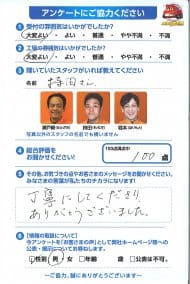 アンケートにご協力ください
1 受付の雰囲気はいかがでしたか?
大変よい ・ よい ・ 普通 ・ やや不満 ・ 不満
2 工場の雰囲気はいかがでしたか?
大変よい ・ よい ・ 普通 ・ やや不満 ・ 不満
3 輝いていたスタッフがいれば教えてください
名前 持田さん
写真以外のスタッフ名でも構いません
4 総合評価を
お聞かせください!
100点満点中!
100 点
5 その他、お気づきの点やお店へのメッセージをお聞かせください。
みなさまの言葉が私たちのチカラになります!
丁寧にしてくださり
ありがとうございました。
6 【情報の取扱について】
今アンケートを「お客さまの声」として弊社ホームページ等への
公表・掲示についてお尋ねします。
性別 男 女 年齢 歳 公表は不可。
~ご協力、誠にありがとうございます~